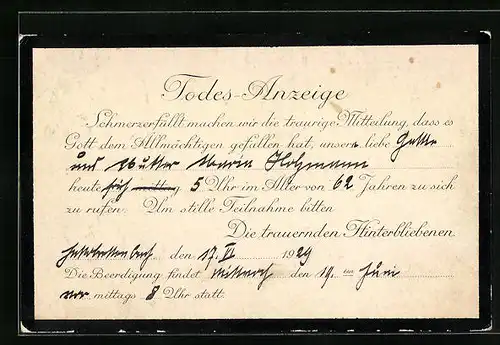 Todes-Anzeige
Schmerzerfüllt machen wir die traurige Mitteilung, dass es
Gott dem Allmächtigen gefallen hat, unsere liebe Gattin
und Mutter Maria Holzmann
heute früh 5 Uhr im Alter von 62 Jahren zu sich
zu rufen. Um stille Teilnahme bitten
Die trauernden Hinterbliebenen.
den 17. VI 1929
Die Beerdigung findet Mittwoch den 19. Juni
vor mittags 8 Uhr statt.